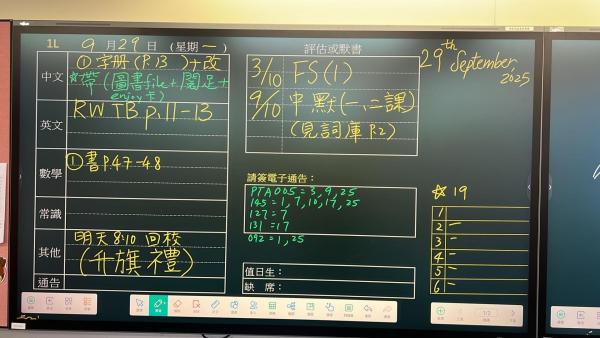 1L 9月29日 (星期一)
中文
① 字册 (P.13 ) + 改
☆帶 (圖書file + 閱足 +
enjoy卡)
英文
RW TB p.11-13
數學
① 書 P.47-48
常識
其他
明天 8:10 回校
(升旗禮)
通告
評估或默書
3/10 FS(1)
9/10 中默(一、二課)
(見詞庫 P.2)
請簽電子通告:
PTA005 = 3, 9, 25
145 = 1, 7, 10, 17, 25
127 = 7
131 = 17
092 = 1, 25
值日生:
缺 席:
29th September,
2025
☆ 19
1
2 一
3 一
4 一
5 一
6 一
1/2